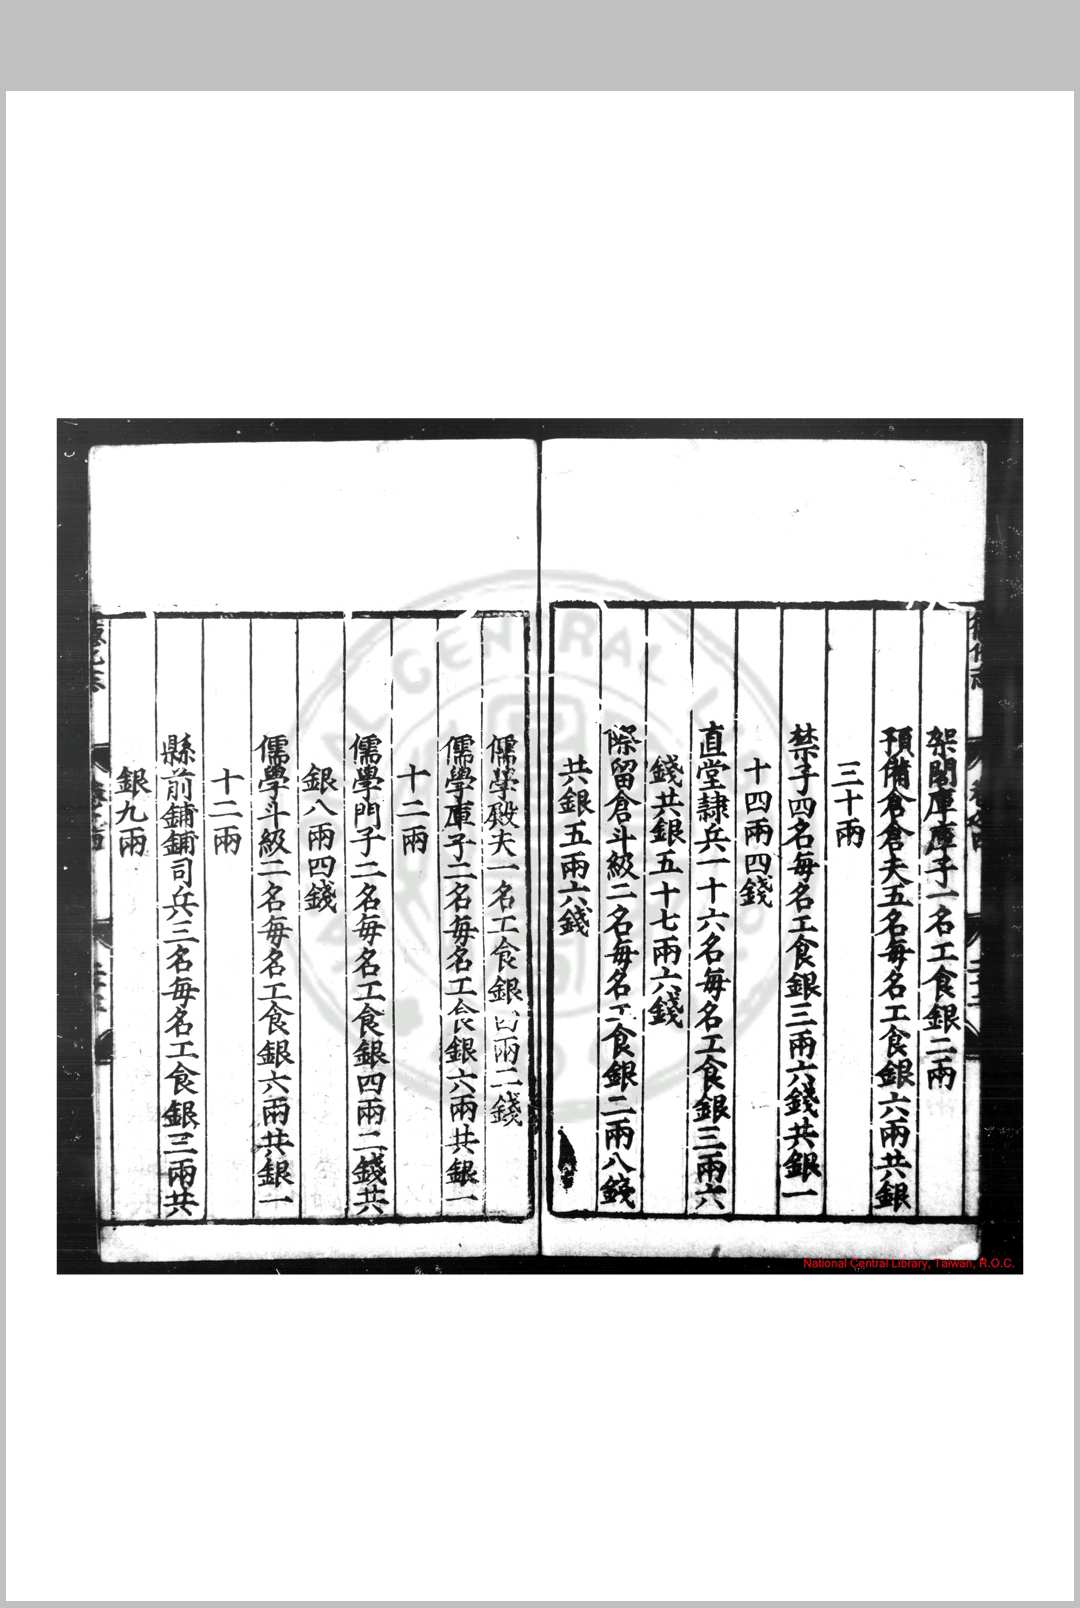 架閣庫庫子一名工食銀二兩
預備倉倉夫五名每名工食銀六兩共銀
三十兩
禁子四名每名工食銀三兩六錢共銀一
十四兩四錢
直堂隸兵一十六名每名工食銀三兩六
錢共銀五十七兩六錢
際留倉斗級二名每名工食銀二兩八錢
共銀五兩六錢
儒學殿夫一名工食銀四兩二錢
儒學庫子二名每名工食銀六兩共銀一
十二兩
儒學門子二名每名工食銀四兩二錢共
銀八兩四錢
儒學斗級二名每名工食銀六兩共銀一
十二兩
縣前鋪鋪司兵三名每名工食銀三兩共
銀九兩
National Central Library, Taiwan, R.O.C.